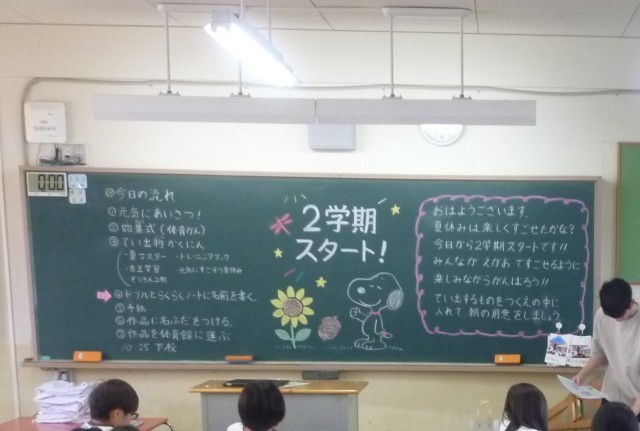 0:00
◎今日の流れ
①元気にあいさつ！
②始業式(体育かん)
③てい出物かくにん
・夏マスター ・トレーニングブック
・自主学習 元気にすごそう夏休み
・ぞうきん2枚
④ドリルとらくらくノートに名前を書く。
⑤手紙
⑥作品に名ふだをつける。
⑦作品を体育館に運ぶ
10:25 下校
2学期
スタート！
おはようございます。
夏休みは楽しくすごせたかな？
今日から2学期スタートです!!
みんながえがおですごせるように
楽しみながらがんばろう!!
てい出するものをつくえの中に
入れて朝の用意をしましょう。